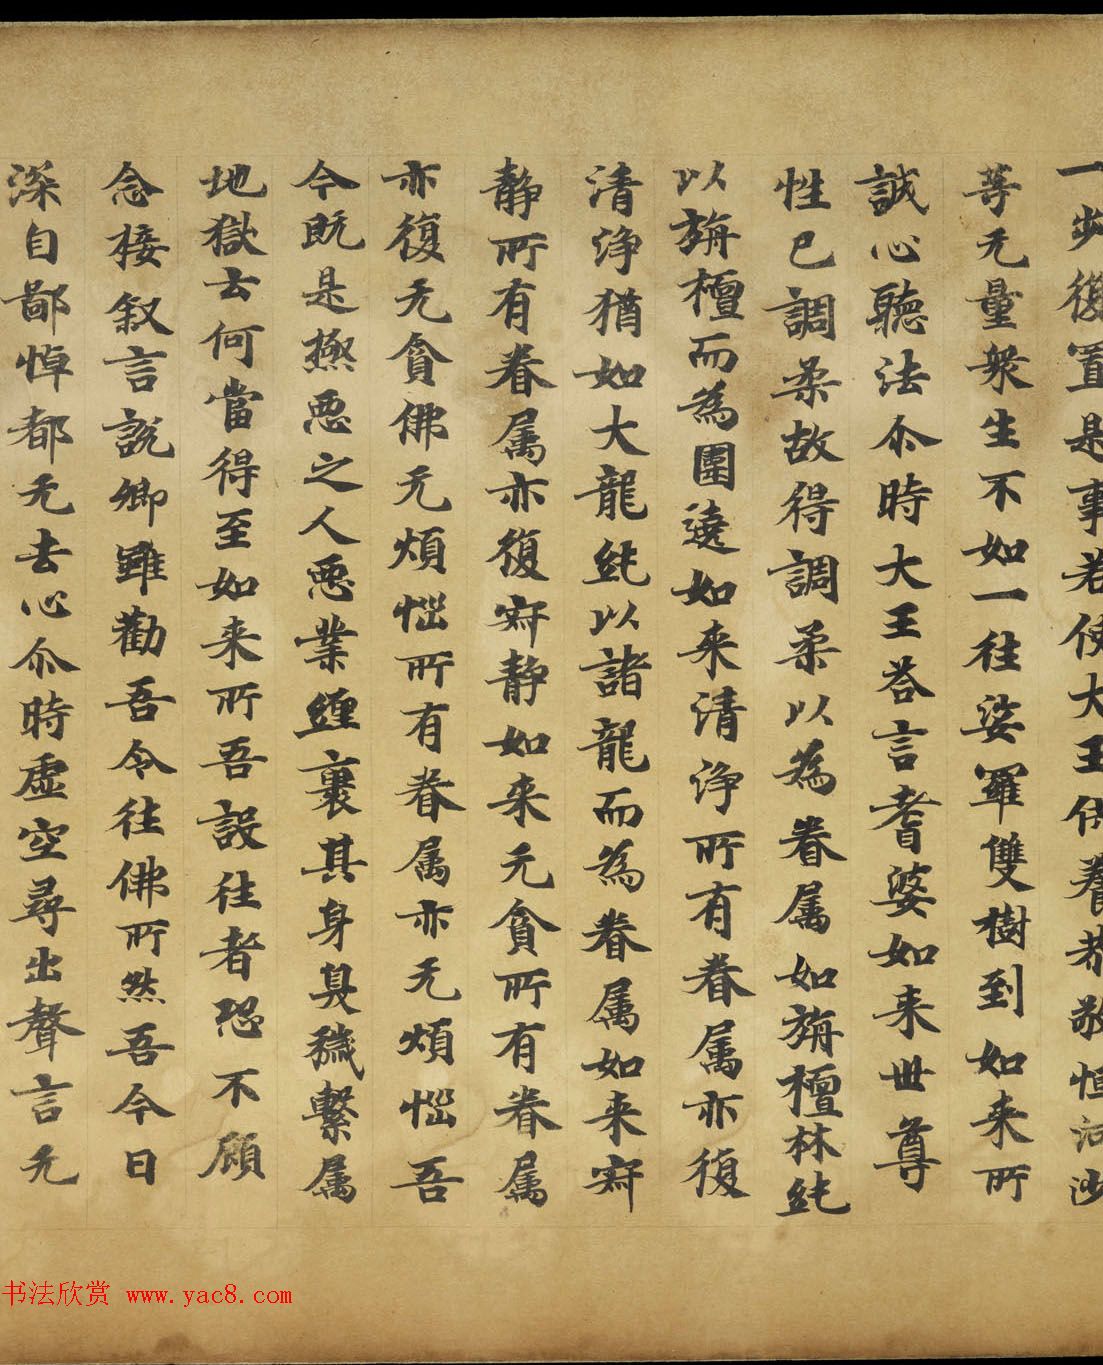 一步復置是事若使大王供養恭敬恒河沙
等无量衆生不如一往娑羅雙樹到如来所
誠心聽法尒時大王荅言耆婆如来世尊
性已調柔故得調柔以為眷属如旃檀林純
以旃檀而為圍遶如来清浄所有眷属亦復
清浄猶如大龍純以諸龍而為眷属如来寂
静所有眷属亦復寂静如来无貪所有眷属
亦復无貪佛无煩惱所有眷属亦无煩惱吾
今既是極悪之人悪業纏裹其身臭穢繫属
地獄云何當得至如来所吾設往者恐不顧
念接叙言說卿雖勸吾令往佛所然吾今日
深自鄙悼都无去心尒時虛空尋出聲言无
书法欣赏 www.yac8.com